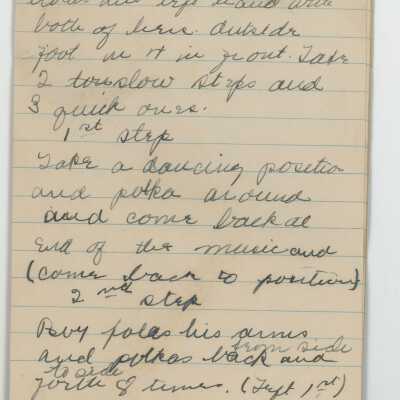 his left hand with
both of hers. Outside
foot in front. Take
2 slow steps and
3 quick ones.
1st step
Take a dancing position
and polka around
and come back at
End of the music and
(come back to position)
2nd step
Boy folds his arms
from side
and polkas back and
to side
forth 8 times. (Left 1st)